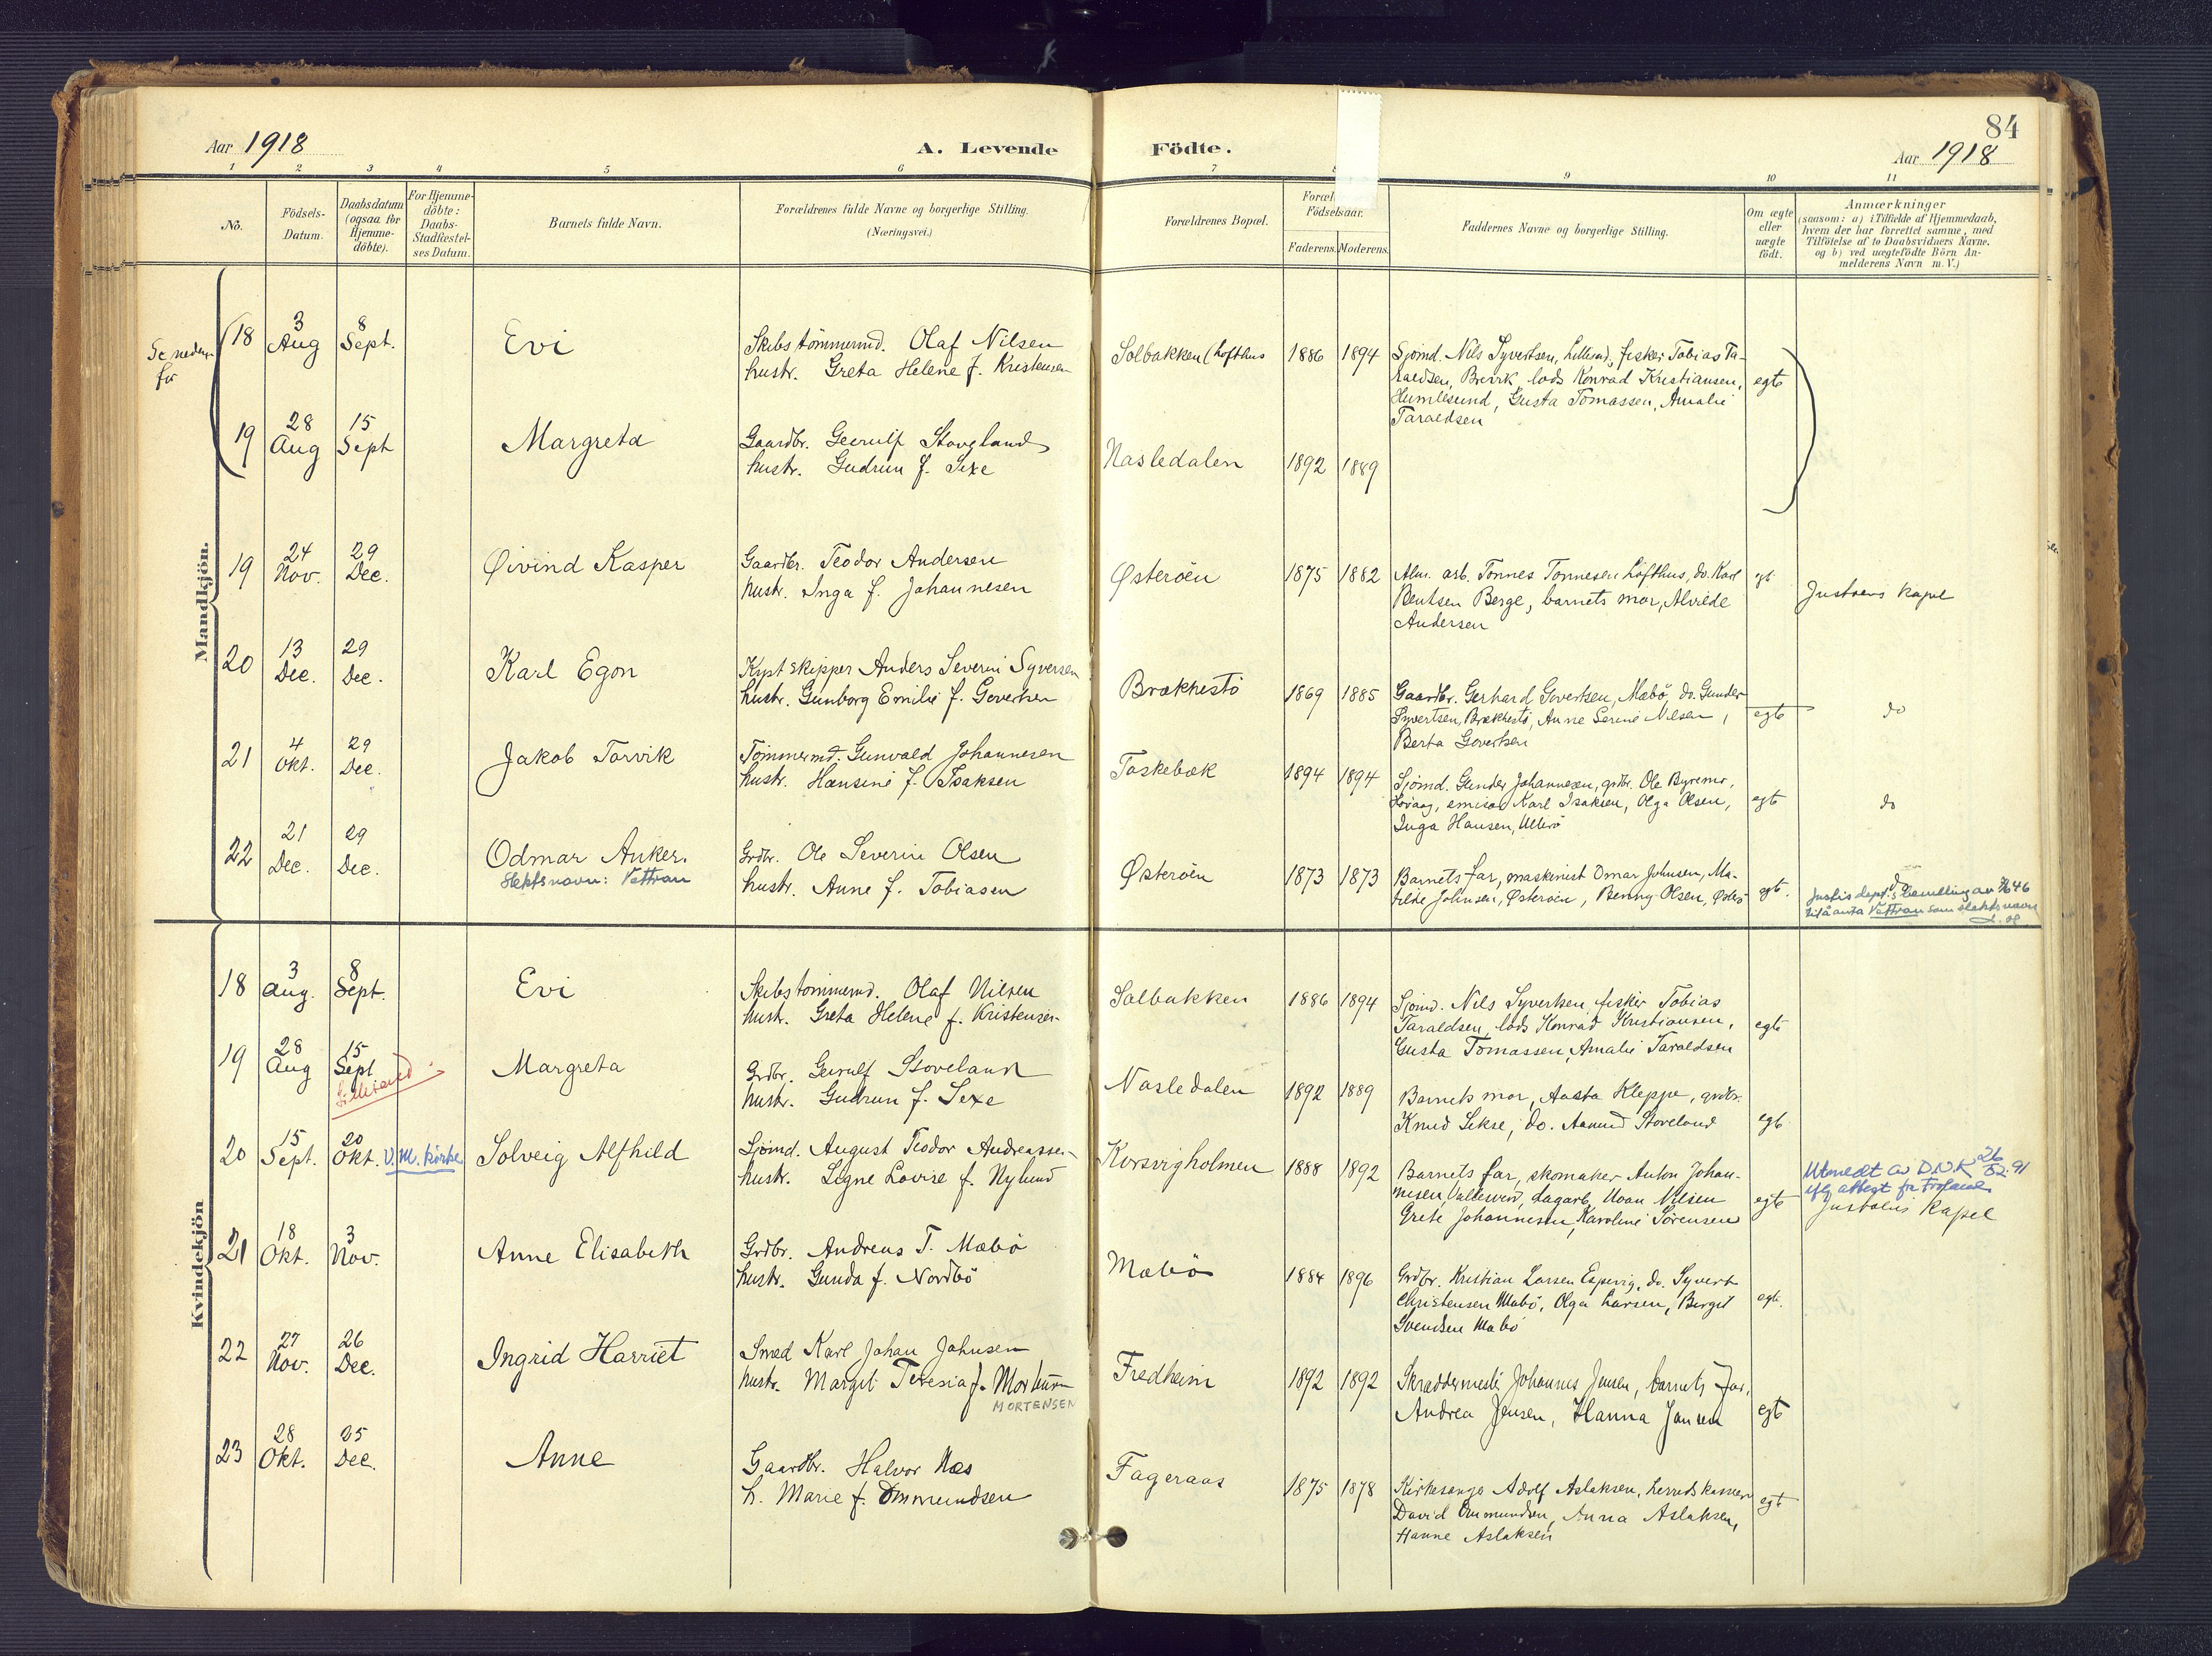 84
Aar 1918
A. Levende Födte.
Aar 1918
1 2 3 4 5 6 7 9 10 11
No.
Födsels-
Datum.
Daabsdatum
(ogsaa for
Hjemme-
döbte).
For Hjemme-
döbte:
Daabs-
Stadfæstel-
ses Datum.
Barnets fulde Navn.
Forældrenes fulde Navne og borgerlige Stilling.
(Næringsvei.)
Forældrenes Bopæl.
Foræl
Födselsaar.
Faderens. Moderens.
Faddernes Navne og borgerlige Stilling.
Om ægte
eller
uægte
födt.
Anmærkninger
(saasom: a) i Tilfælde af Hjemmedaab,
hvem der har forrettet samme, med
Tilföielse af to Daabsvidners Navne.
og b) ved uægtefödte Börn An-
melderens Navn m. V.)
Mandkjön.
Se neden-
for
18
3
Aug
8
Sept.
Evi
Skibstömmermd. Olaf Nilsen
hustr. Greta Helene f. Kristensen
Solbakken (Lofthus
1886 1894
Sjömd. Nils Syvertsen, Lillesand, fisker Tobias Ta-
raldsen, Brevik, lods Konrad Kristiansen,
Humlesund, Gusta Tomassen, Amalie
Taraldsen
egte
19
28
Aug
15
Sept
Margreta
Gaardbr. Geirulf Stoveland
hustr. Gudrun f. Sexe
Nasledalen
1892 1889
19
24
Nov.
29
Dec.
Øivind Kasper
Gaardbr. Teodor Andersen
hustr. Inga f. Johannesen
Østeröen
1875 1882
Alm. arb. Tönnes Tönnesen Lofthus, do. Karl
Bentsen Berge, barnets mor, Alvilde
Andersen
egt
Justöens kapel
20
13
Dec.
29
Dec.
Karl Egon
Kystskipper Anders Severin Syversen
hustr. Gunborg Emilie f. Govertsen
Brækkestö
1869 1885
Gaardbr. Gerhard Govertsen, Mæbö, do. Gunder
Syvertsen, Brækkestö, Anne Serine Nilsen,
Berta Govertsen
egte
do
21
4
Okt.
29
Dec.
Jakob Torvik
Tömmermd. Gunvald Johannesen
hustr. Hansine f. Isaksen
Taskebæk
1894 1894
Sjömd. Gunder Johannesen, grdbr. Ole Byremo,
emisær Karl Isaksen, Olga Olsen,
Inga Hansen, Ulterö
egte
do
22
21
Dec.
29
Dec.
Odmar Anker.
slektsnavn: Vettran
Grdbr. Ole Severin Olsen
hustr. Anne f. Tobiasen
Østeröen
1873 1873
Barnets far, maskinist Omar Johnsen, Ma-
tilde Johnsen, Østeröen, Benny Olsen, Österö
egt.
Justis dept's bevilling av 46
til å anta Vettran som slektsnavn
Kvindekjön
18
3
Aug.
8
Sept.
Evi
Skibstömmermd. Olaf Nilsen
hustr. Greta Helene f. Kristensen
Solbakken
1886 1894
Sjömd. Nils Syvertsen, fisker Tobias
Taraldsen, lods Konrad Kristiansen,
Gusta Tomassen, Amalie Taraldsen
egte
19
28
Aug
15
Sept
Lillesand
Margreta
Grdbr. Geirulf Stoveland
hustr. Gudrun f. Sexe
Nasledalen
1892 1889
Barnets mor, Aasta Kleppe, grdbr.
Knud Sekse, do. Aamund Stoveland
egt
20
15
Sept.
20
Okt.
V. M. kirke
Solveig Alfhild
Sjömd. August Teodor Andreassen
hustr. Signe Lovise f. Nylund
Korsvigholmen
1888 1892
Barnets far, skomaker Anton Johan-
nesen, Vallesverd, dagarb. Noan Nilsen
Grete Johannesen, Karoline Sörensen
egte
Utmeldt av D.N.K 26
02.91
iflg attest fr Froland
Justöens Kapel
21
18
Okt.
3
Nov.
Anne Elisabeth
Grdbr. Andreas T. Mæbö
hustr. Gunda f. Nordbö
Mæbö
1884 1896
Grdbr. Kristian Larsen Espevig, do. Syvert
Christensen Mæbö, Olga Larsen, Birgit
Svendsen Mæbö
egt.
22
27
Nov.
26
Dec.
Ingrid Harriet
Smed Karl Johan Johnsen
hustr. Margit Teresia f. Mortensen
MORTENSEN
Fredheim
1892 1892
Skræddermester Johannes Jensen, barnets far,
Andrea Jensen, Hanna Jansen
egt
23
28
Okt.
25
Dec.
Anne
Gaardbr. Halvor Næs
h. Marie f. Ommundsen
Fageraas
1875 1878
Kirkesanger Adolf Aslaksen, herredskasserer
David Ommundsen, Anna Aslaksen,
Hanne Aslaksen
egt